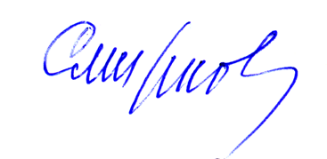 Смирнов